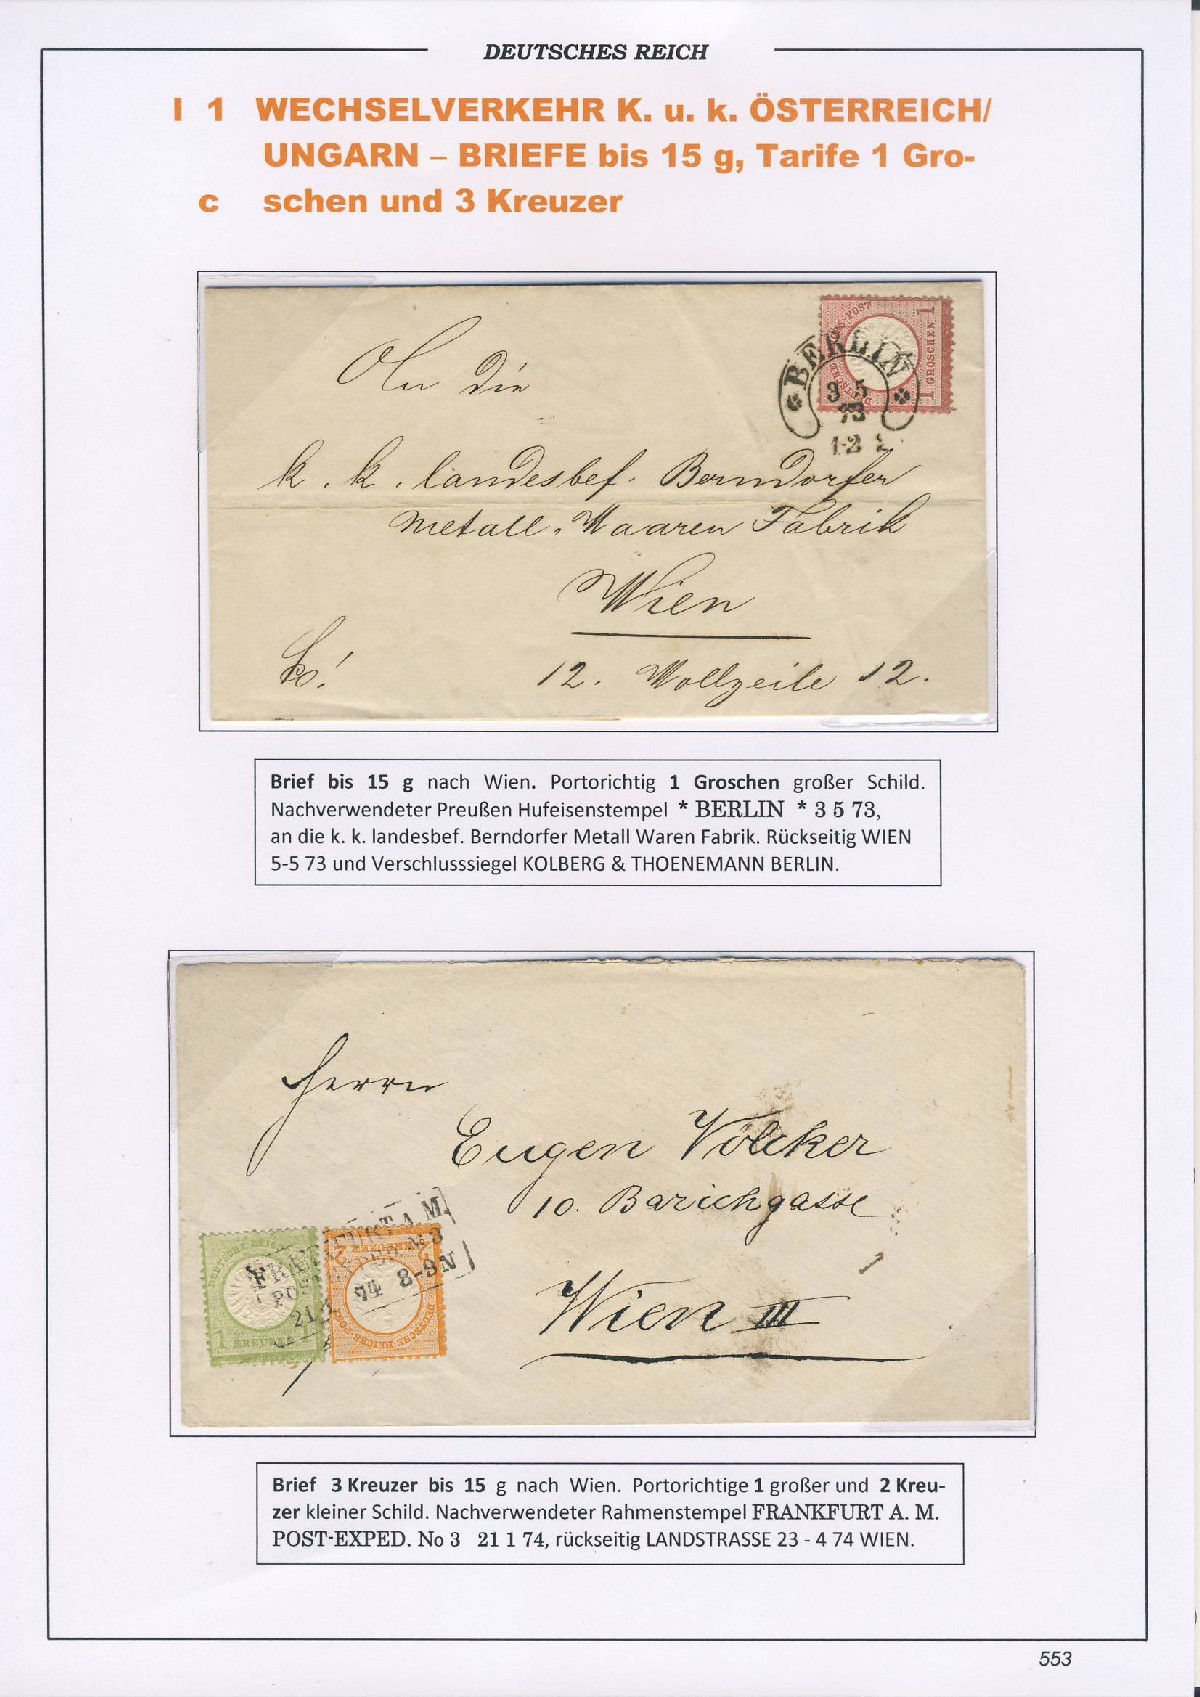 DEUTSCHES REICH
I 1 WECHSELVERKEHR K. u. k. ÖSTERREICH/
UNGARN – BRIEFE bis 15 g, Tarife 1 Gro-
c schen und 3 Kreuzer
1
GROSCHEN
1
BERLIN
3 5
73
1-2
An die
k. k. landesbef. Berndorfer
Metall-Waaren Fabrik
Wien
12. Wollzeile 12.
Brief bis 15 g nach Wien. Portorichtig 1 Groschen großer Schild.
Nachverwendeter Preußen Hufeisenstempel * BERLIN * 3 5 73,
an die k. k. landesbef. Berndorfer Metall Waren Fabrik. Rückseitig WIEN
5-5 73 und Verschlusssiegel KOLBERG & THOENEMANN BERLIN.
Herrn
Eugen Völcker
10. Barichgasse
Wien III
FRANKFURT A. M.
POST-EXPED. No 3
21 1 74 8-9N
1 KREUZER
2
Brief 3 Kreuzer bis 15 g nach Wien. Portorichtige 1 großer und 2 Kreu-
zer kleiner Schild. Nachverwendeter Rahmenstempel FRANKFURT A. M.
POST-EXPED. No 3 21 1 74, rückseitig LANDSTRASSE 23 - 4 74 WIEN.
553